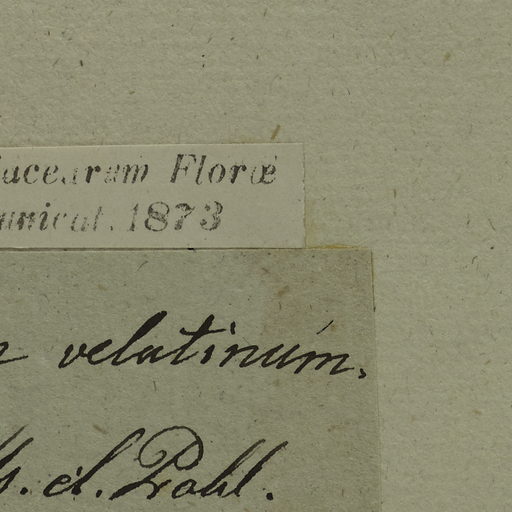 acearum Floræ
unicat. 1873
velutinum.
el. Pohl.